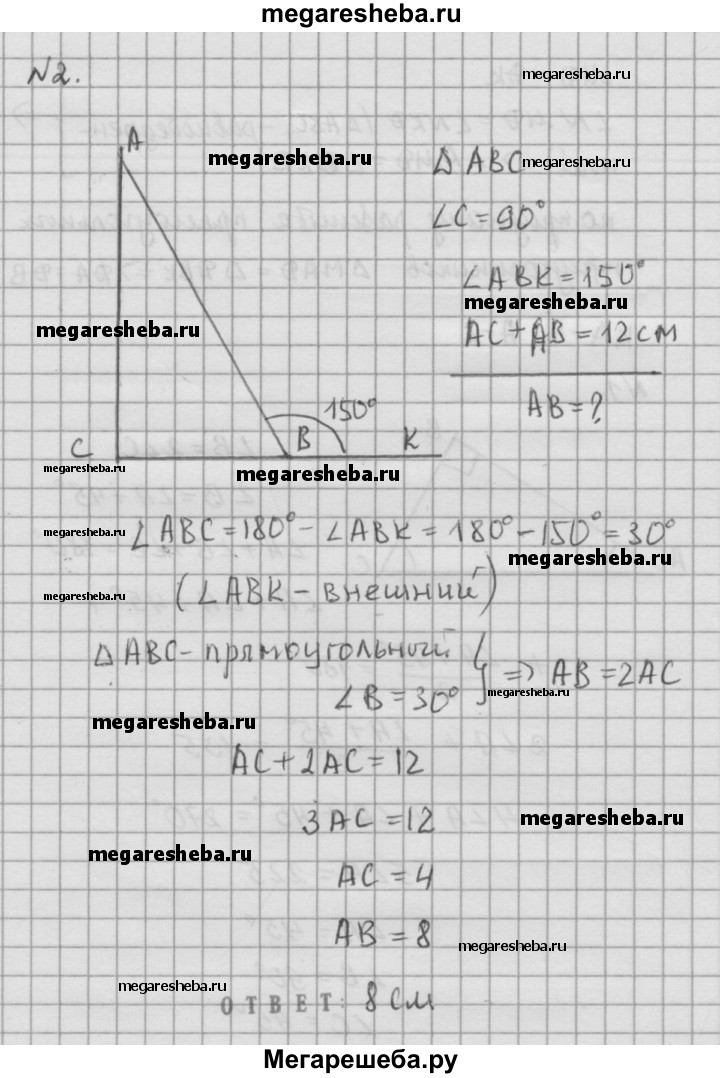 megaresheba.ru
N2.
megaresheba.ru
A
megaresheba.ru
Δ ABC
megaresheba.ru
∠C = 90°
∠ABK = 150°
megaresheba.ru
megaresheba.ru
AC + AB = 12 см
AB = ?
150°
C
B
K
megaresheba.ru
megaresheba.ru
∠ABC = 180° - ∠ABK = 180° - 150° = 30°
megaresheba.ru
megaresheba.ru
(∠ABK - внешний)
megaresheba.ru
Δ ABC - прямоугольный
∠B = 30° } => AB = 2AC
megaresheba.ru
megaresheba.ru
AC + 2AC = 12
3AC = 12
megaresheba.ru
megaresheba.ru
AC = 4
AB = 8
megaresheba.ru
megaresheba.ru
ОТВЕТ: 8 см
Мегарешеба.ру